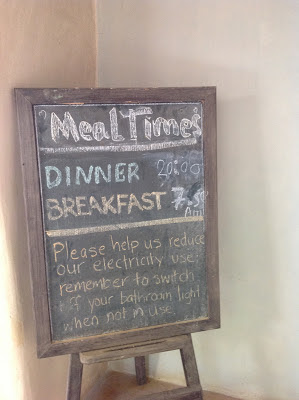 Meal Times
DINNER
BREAKFAST
AM
Please help us reduce
our electricity use:
remember to switch
off your bathroom light
when not in use.